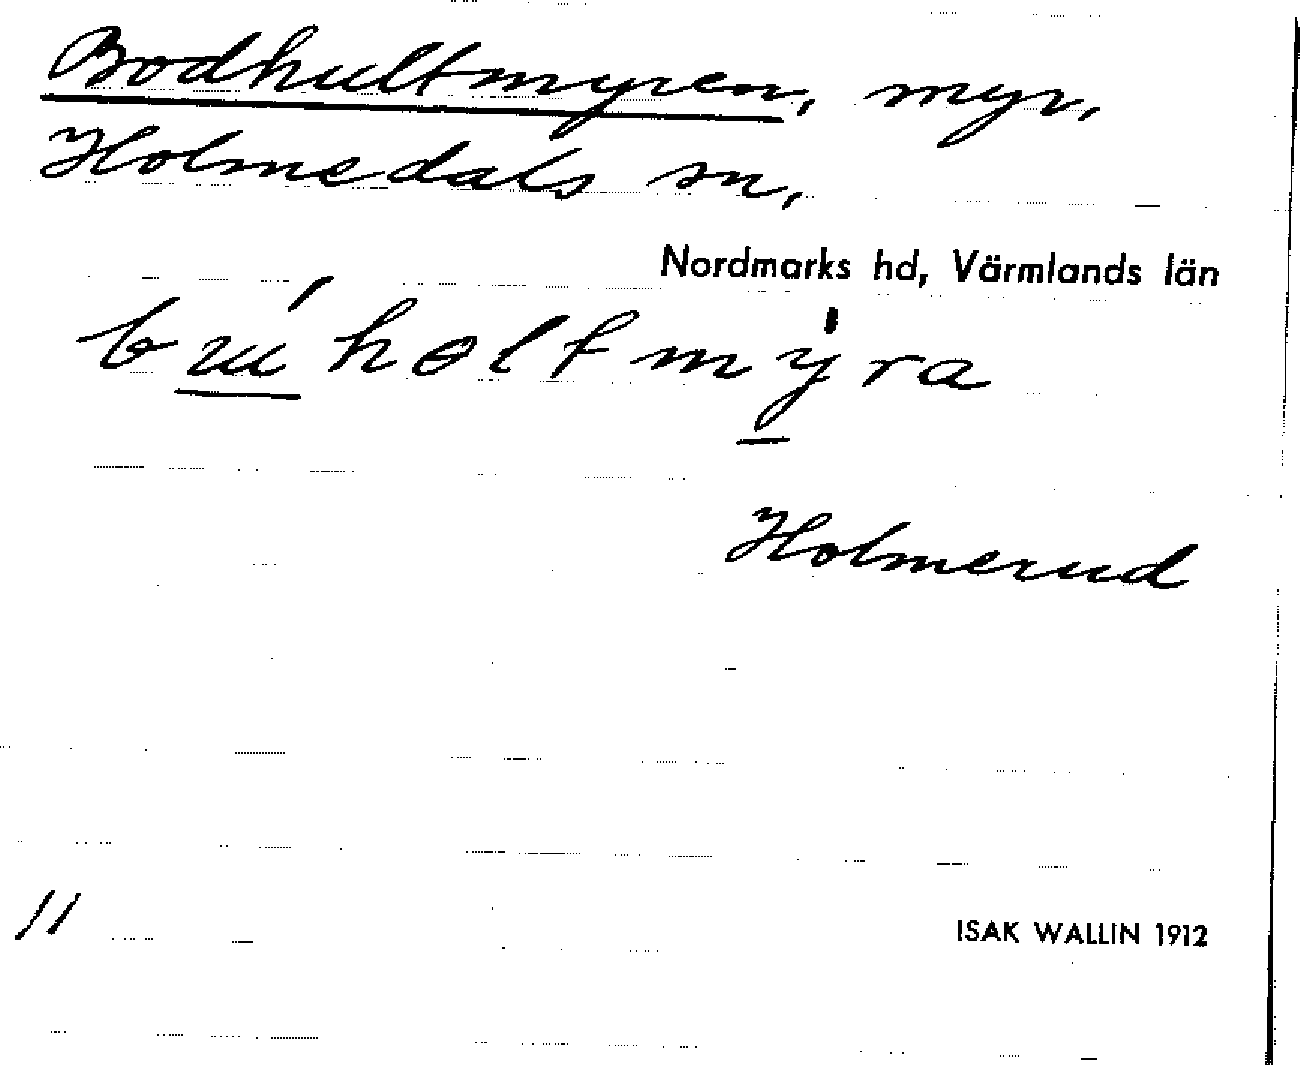 Bodhultmyren, myr,
Holmedals sn,
Nordmarks hd, Värmlands län
Holmerud
11
ISAK WALLIN 1912